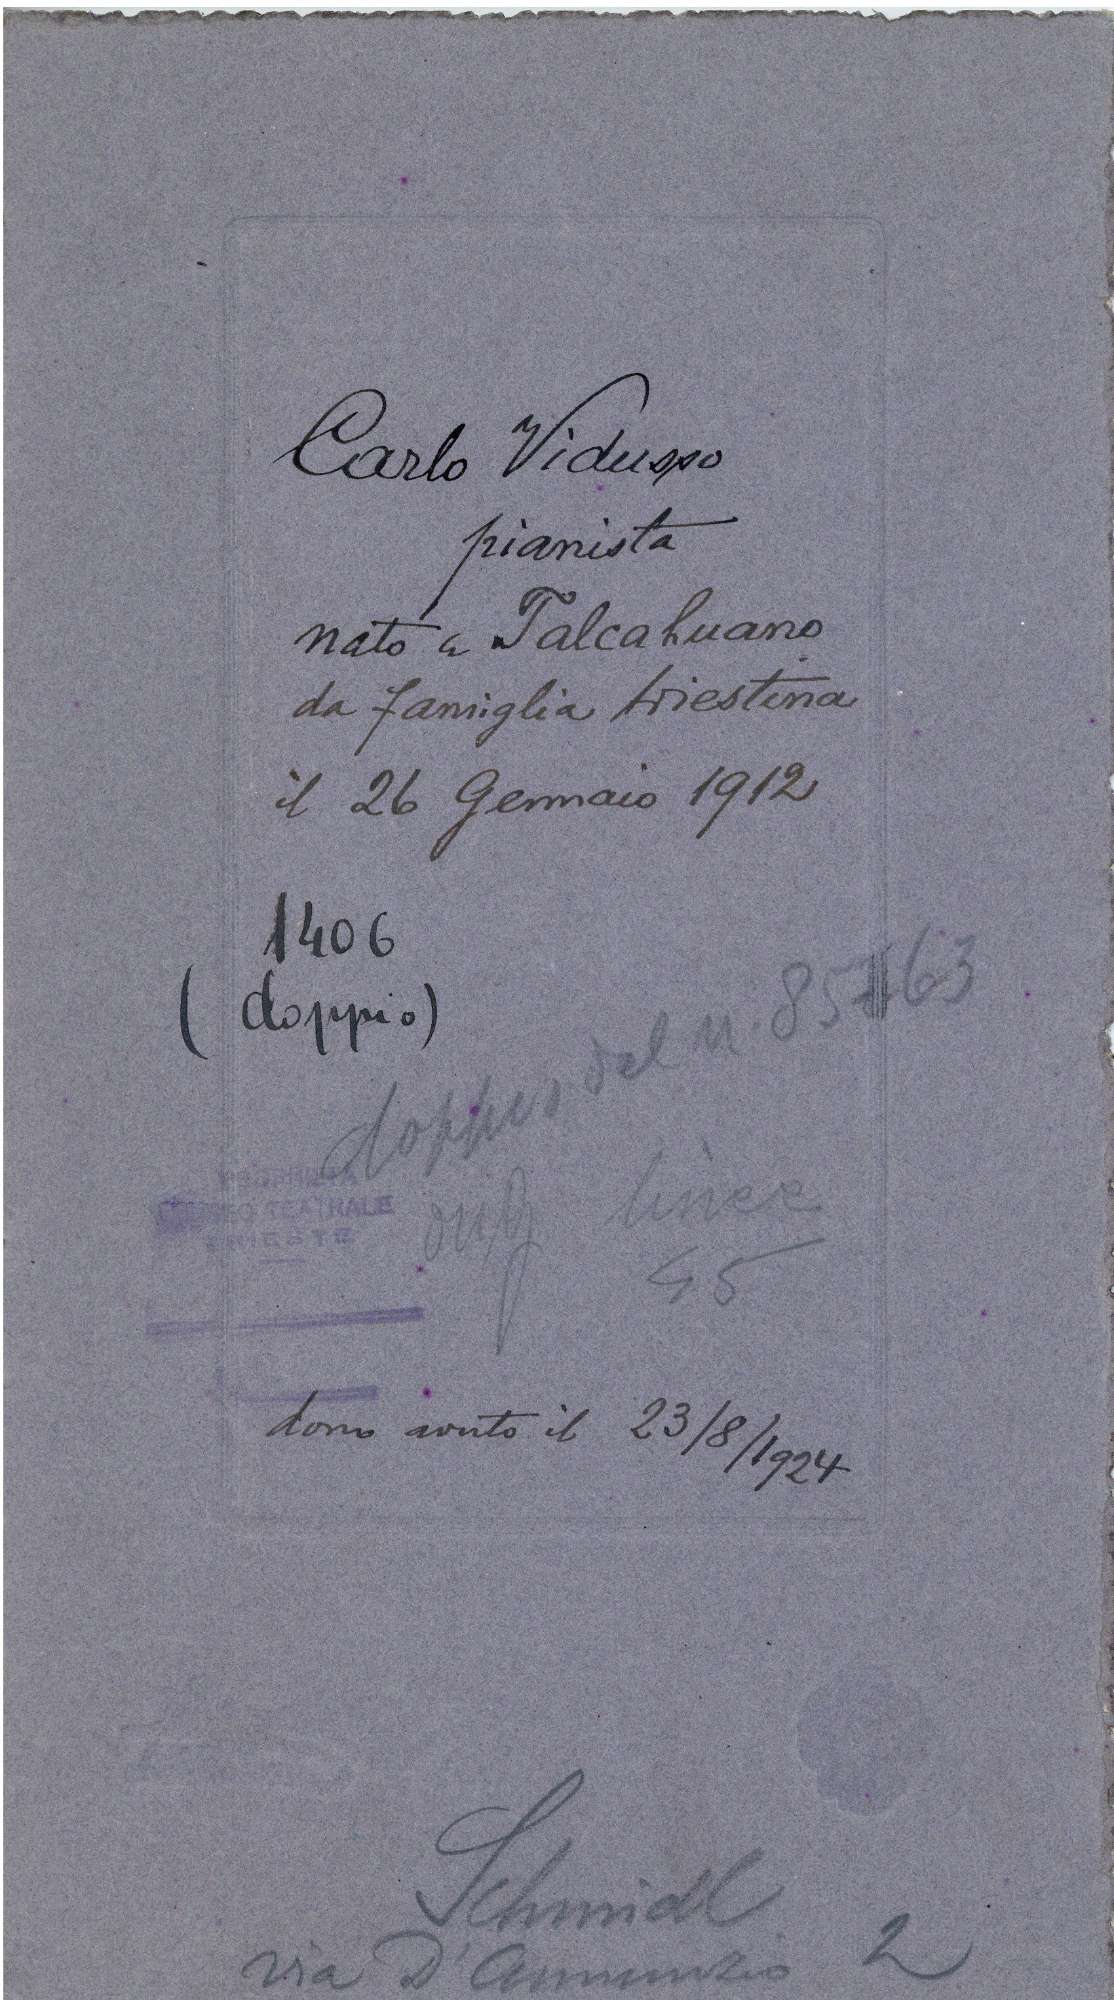 Carlo Vidusso
pianista
nato a Talcahuano
da famiglia triestina
il 26 Gennaio 1912
1406
(doppio)
doppio del n. 85763
linee
45
PROPRIETÀ
MUSEO TEATRALE
TRIESTE
dono avuto il 23/8/1924
Schmidl
via D'Annunzio 2